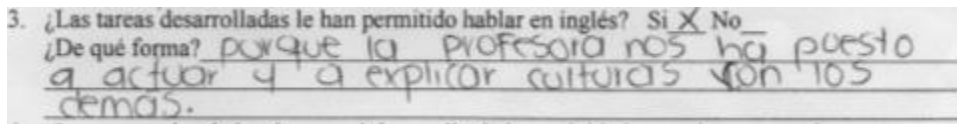 3. ¿Las tareas desarrolladas le han permitido hablar en inglés? Si X No__
¿De qué forma? porque la profesora nos ha puesto
a actuar y a explicar culturas con los
demás.